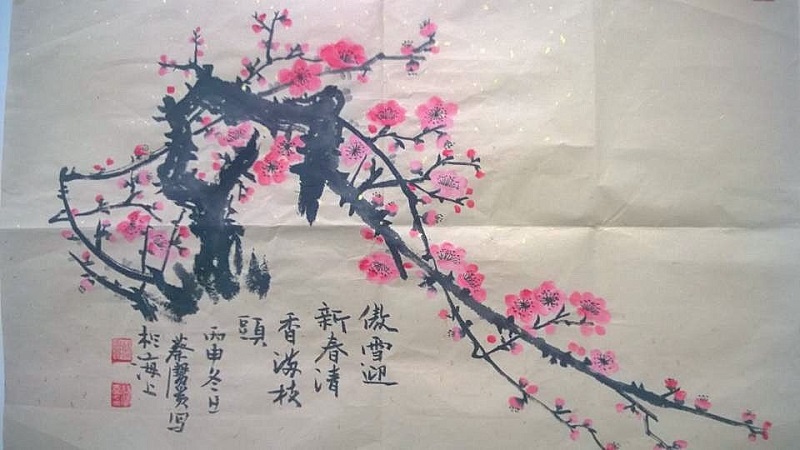 傲雪迎
新春清
香满枝
頭
丙申冬日
蔡 写
於海上